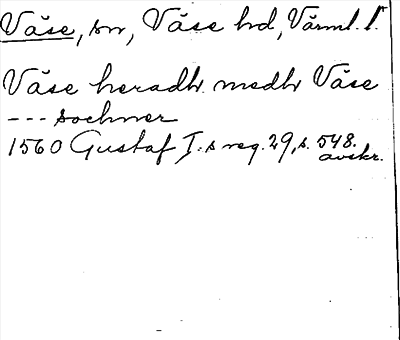 Väse, sn, Väse hd, Värml. l.
Väse heradh medh Väse
--- sochner
1560 Gustaf I:s reg. 29, s. 548.
avskr.